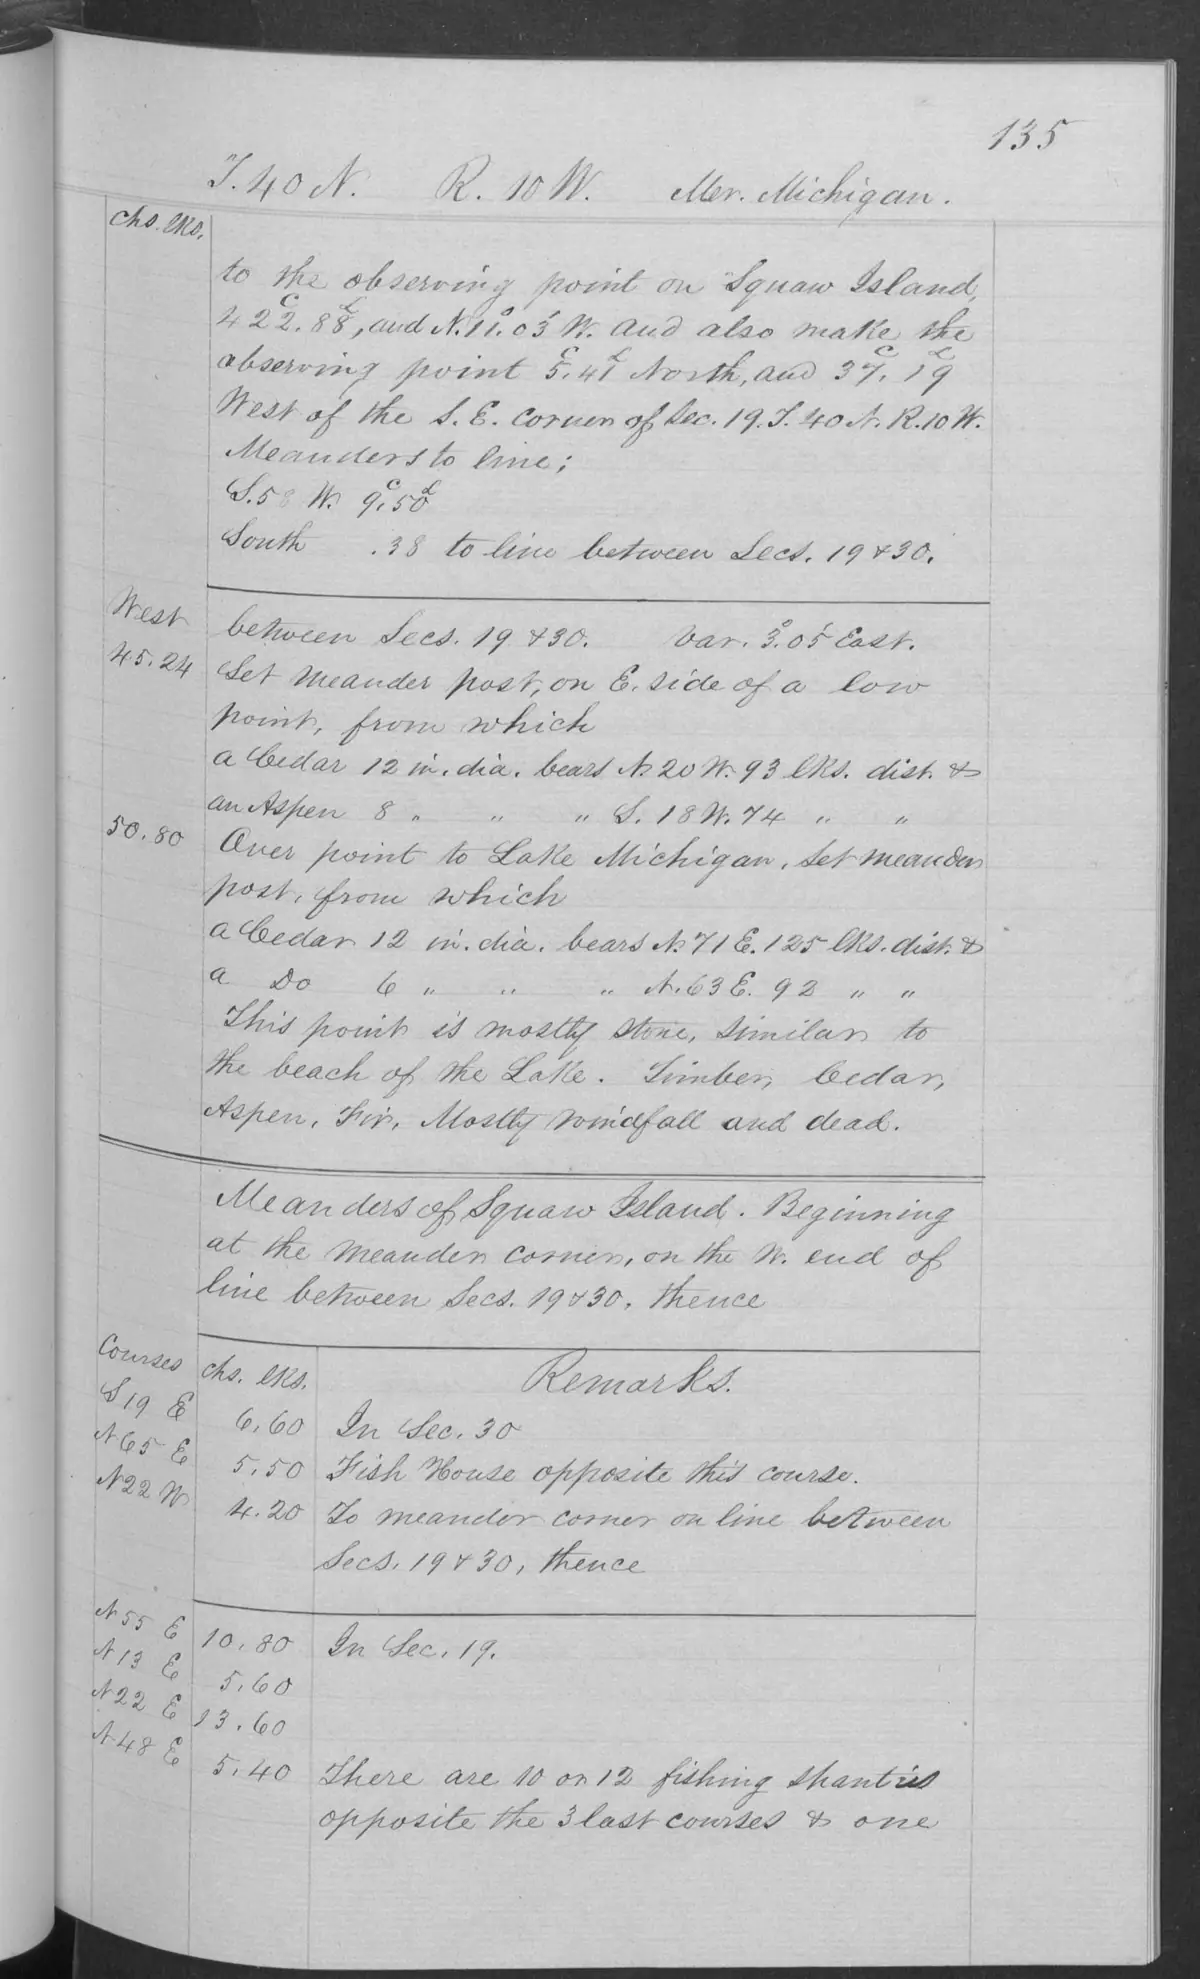 135
T. 40 N. R. 10 W. Mer. Michigan.
chs. lks.
to the observing point on Squaw Island,
422.C 88L, and N. 11.° 03' W. and also make the
observing point 5.C 41L North, and 37.C 19L
West of the S. E. corner of Sec. 19. T. 40 N. R. 10 W.
Meanders to line;
S. 58 W. 9.C 50L
South .38 to line between Secs. 19 & 30.
West between Secs. 19 & 30. Var. 3.° 05' East.
45.24 Set meander post, on E. side of a low
point, from which
a Cedar 12 in. dia. bears N. 20 W. 93 lks. dist. &
an Aspen 8 " " " S. 18 W. 74 " "
50.80 Over point to Lake Michigan, Set meander
post, from which
a Cedar 12 in. dia. bears N. 71 E. 125 lks. dist. &
a Do 6 " " " N. 63 E. 92 " "
This point is mostly stone, similar to
the beach of the Lake. Timber, Cedar,
Aspen, Fir, Mostly windfall and dead.
Meanders of Squaw Island. Beginning
at the meander corner, on the W. end of
line between Secs. 19 & 30, thence
Courses chs. lks. Remarks.
S 19 E 6.60 In Sec. 30
N 65 E 5.50 Fish House opposite this course.
N 22 W 4.20 To meander corner on line between
Secs. 19 & 30, thence
N 55 E 10.80 In Sec. 19.
N 13 E 5.60
N 22 E 13.60
N 48 E 5.40 There are 10 or 12 fishing shanties
opposite the 3 last courses & one